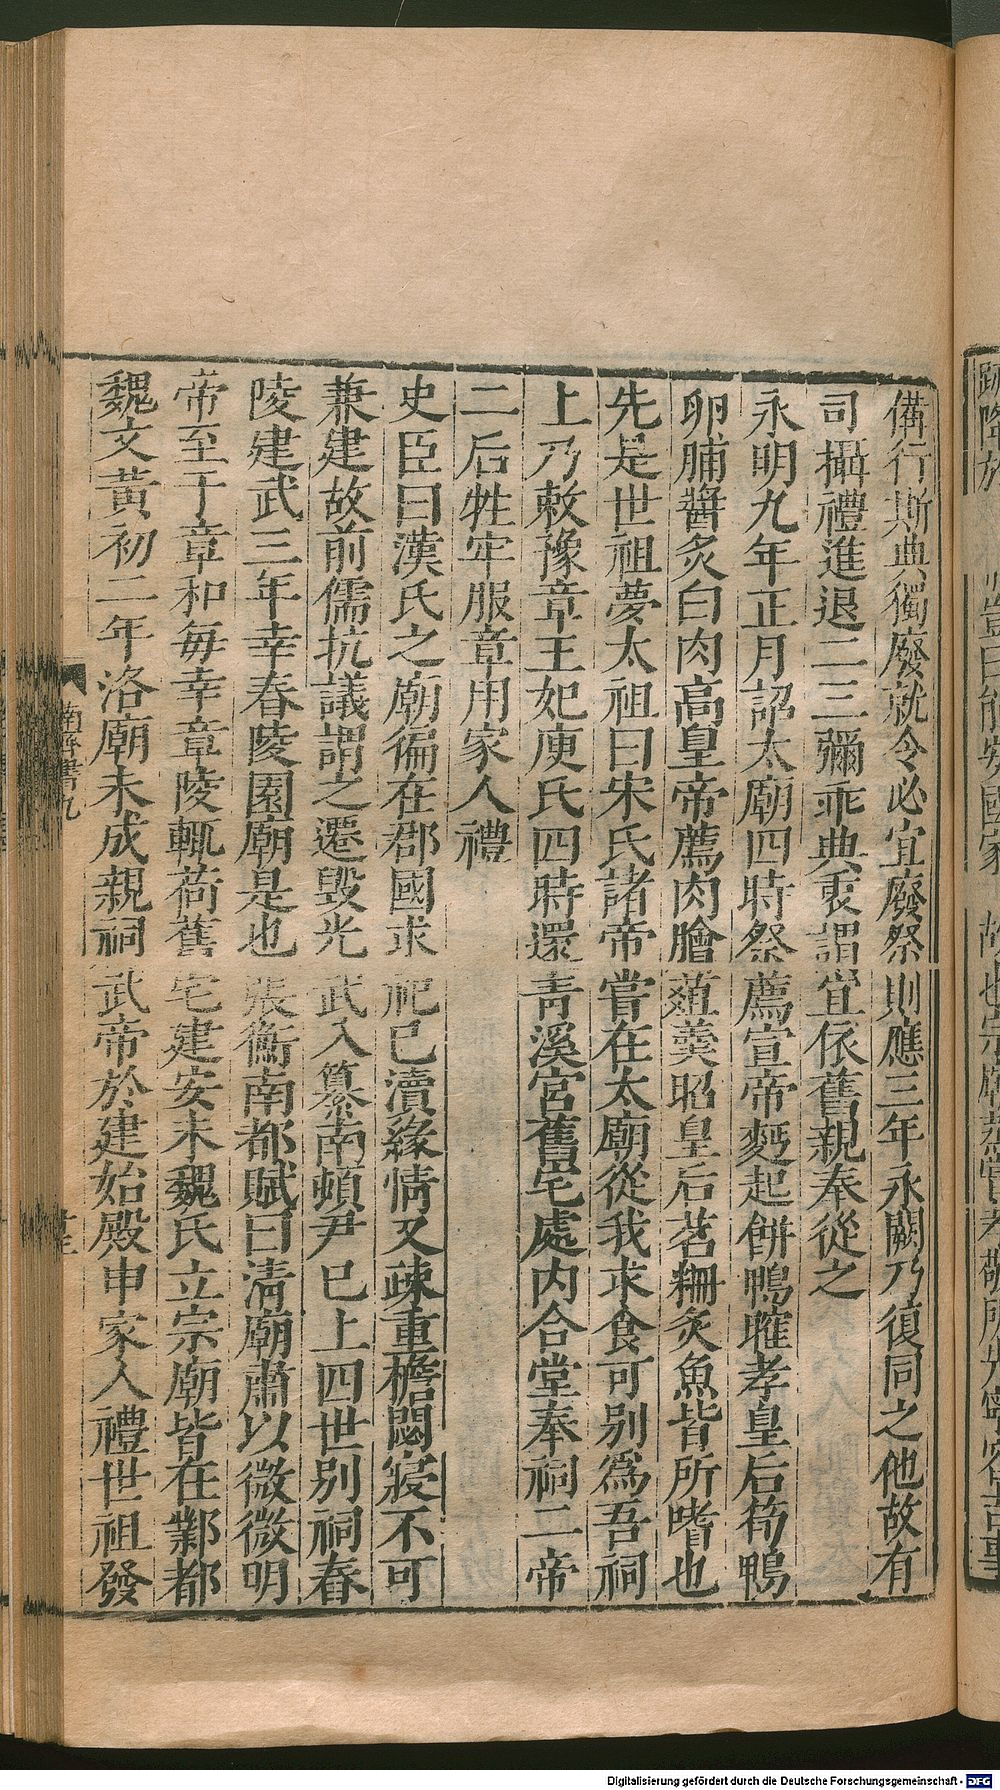 備行斯典獨廢就令必宜廢祭則應三年永闕乃復同之他故有
司攝禮進退二三彌乖典衷謂宜依舊親奉從之
永明九年正月詔太廟四時祭薦宣帝麪起餅鴨臛孝皇后筍鴨
卵脯醬炙白肉高皇帝薦肉膾葅羹昭皇后茗粣炙魚皆所嗜也
先是世祖夢太祖曰宋氏諸帝嘗在太廟從我求食可别爲吾祠
上乃敕豫章王妃庾氏四時還青溪宮舊宅處内合堂奉祠二帝
二后牲牢服章用家人禮
史臣曰漢氏之廟徧在郡國求祀已瀆緣情又疎重檐閟寢不可
兼建故前儒抗議謂之遷毁光武入纂南頓尹已上四世别祠舂
陵建武三年幸舂陵園廟是也張衡南都賦曰清廟肅以微微明
帝至于章和每幸章陵輒荷舊宅建安末魏氏立宗廟皆在鄴都
魏文黃初二年洛廟未成親祠武帝於建始殿申家人禮世祖發
南齊書九
Digitalisierung gefördert durch die Deutsche Forschungsgemeinschaft - DFG